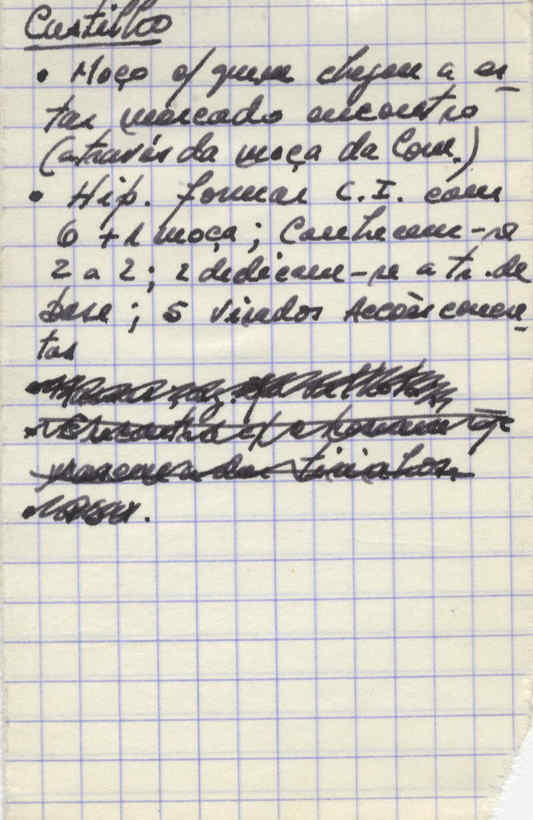 Castilho
• Moço c/ quem chegou a es-
tar marcado encontro
(através da moça da Com.)
• Hip. formar C.I. com
6 + 1 moça; Conhecem-se
2 a 2; 2 dedicam-se a tr. de
base; 5 virados Acções concre-
tas